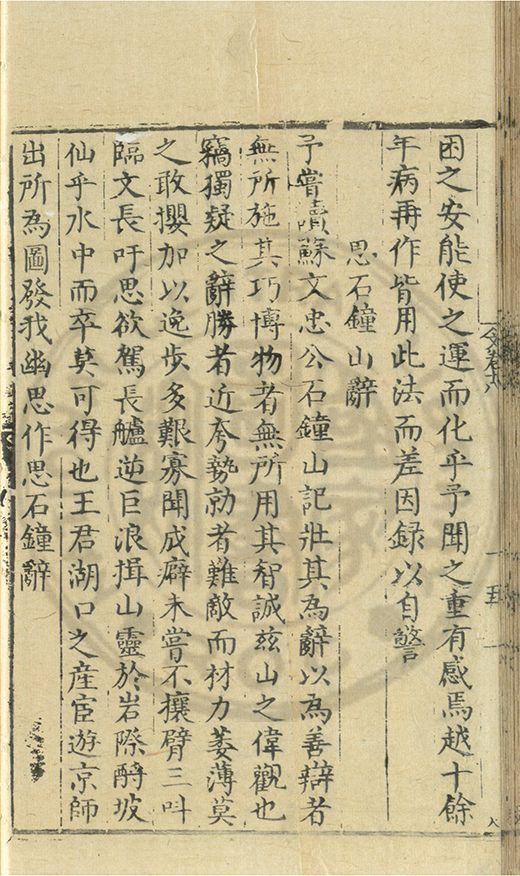 困之安能使之運而化乎予聞之重有感焉越十餘
年病再作皆用此法而差因録以自警
思石鐘山辭
予嘗讀蘇文忠公石鐘山記壯其為辭以為善辯者
無所施其巧博物者無所用其智誠玆山之偉觀也
竊獨疑之辭勝者近夸勢勍者難敵而材力萎薄莫
之敢攖加以逸步多艱寡聞成癖未嘗不攘臂三叫
臨文長吁思欲駕長艫逆巨浪揖山靈於岩際酹坡
仙乎水中而卒莫可得也王君湖口之産宦遊京師
出所為圖發我幽思作思石鐘辭
五